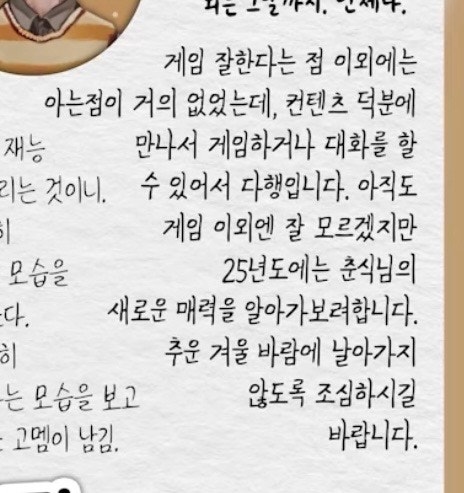 게임 잘한다는 점 이외에는
아는점이 거의 없었는데, 컨텐츠 덕분에
만나서 게임하거나 대화를 할
수 있어서 다행입니다. 아직도
게임 이외엔 잘 모르겠지만
25년도에는 춘식님의
새로운 매력을 알아가보려합니다.
추운 겨울 바람에 날아가지
않도록 조심하시길
바랍니다.
재능
리는 것이니.
히
모습을
다.
히
는 모습을 보고
고멤이 남김.